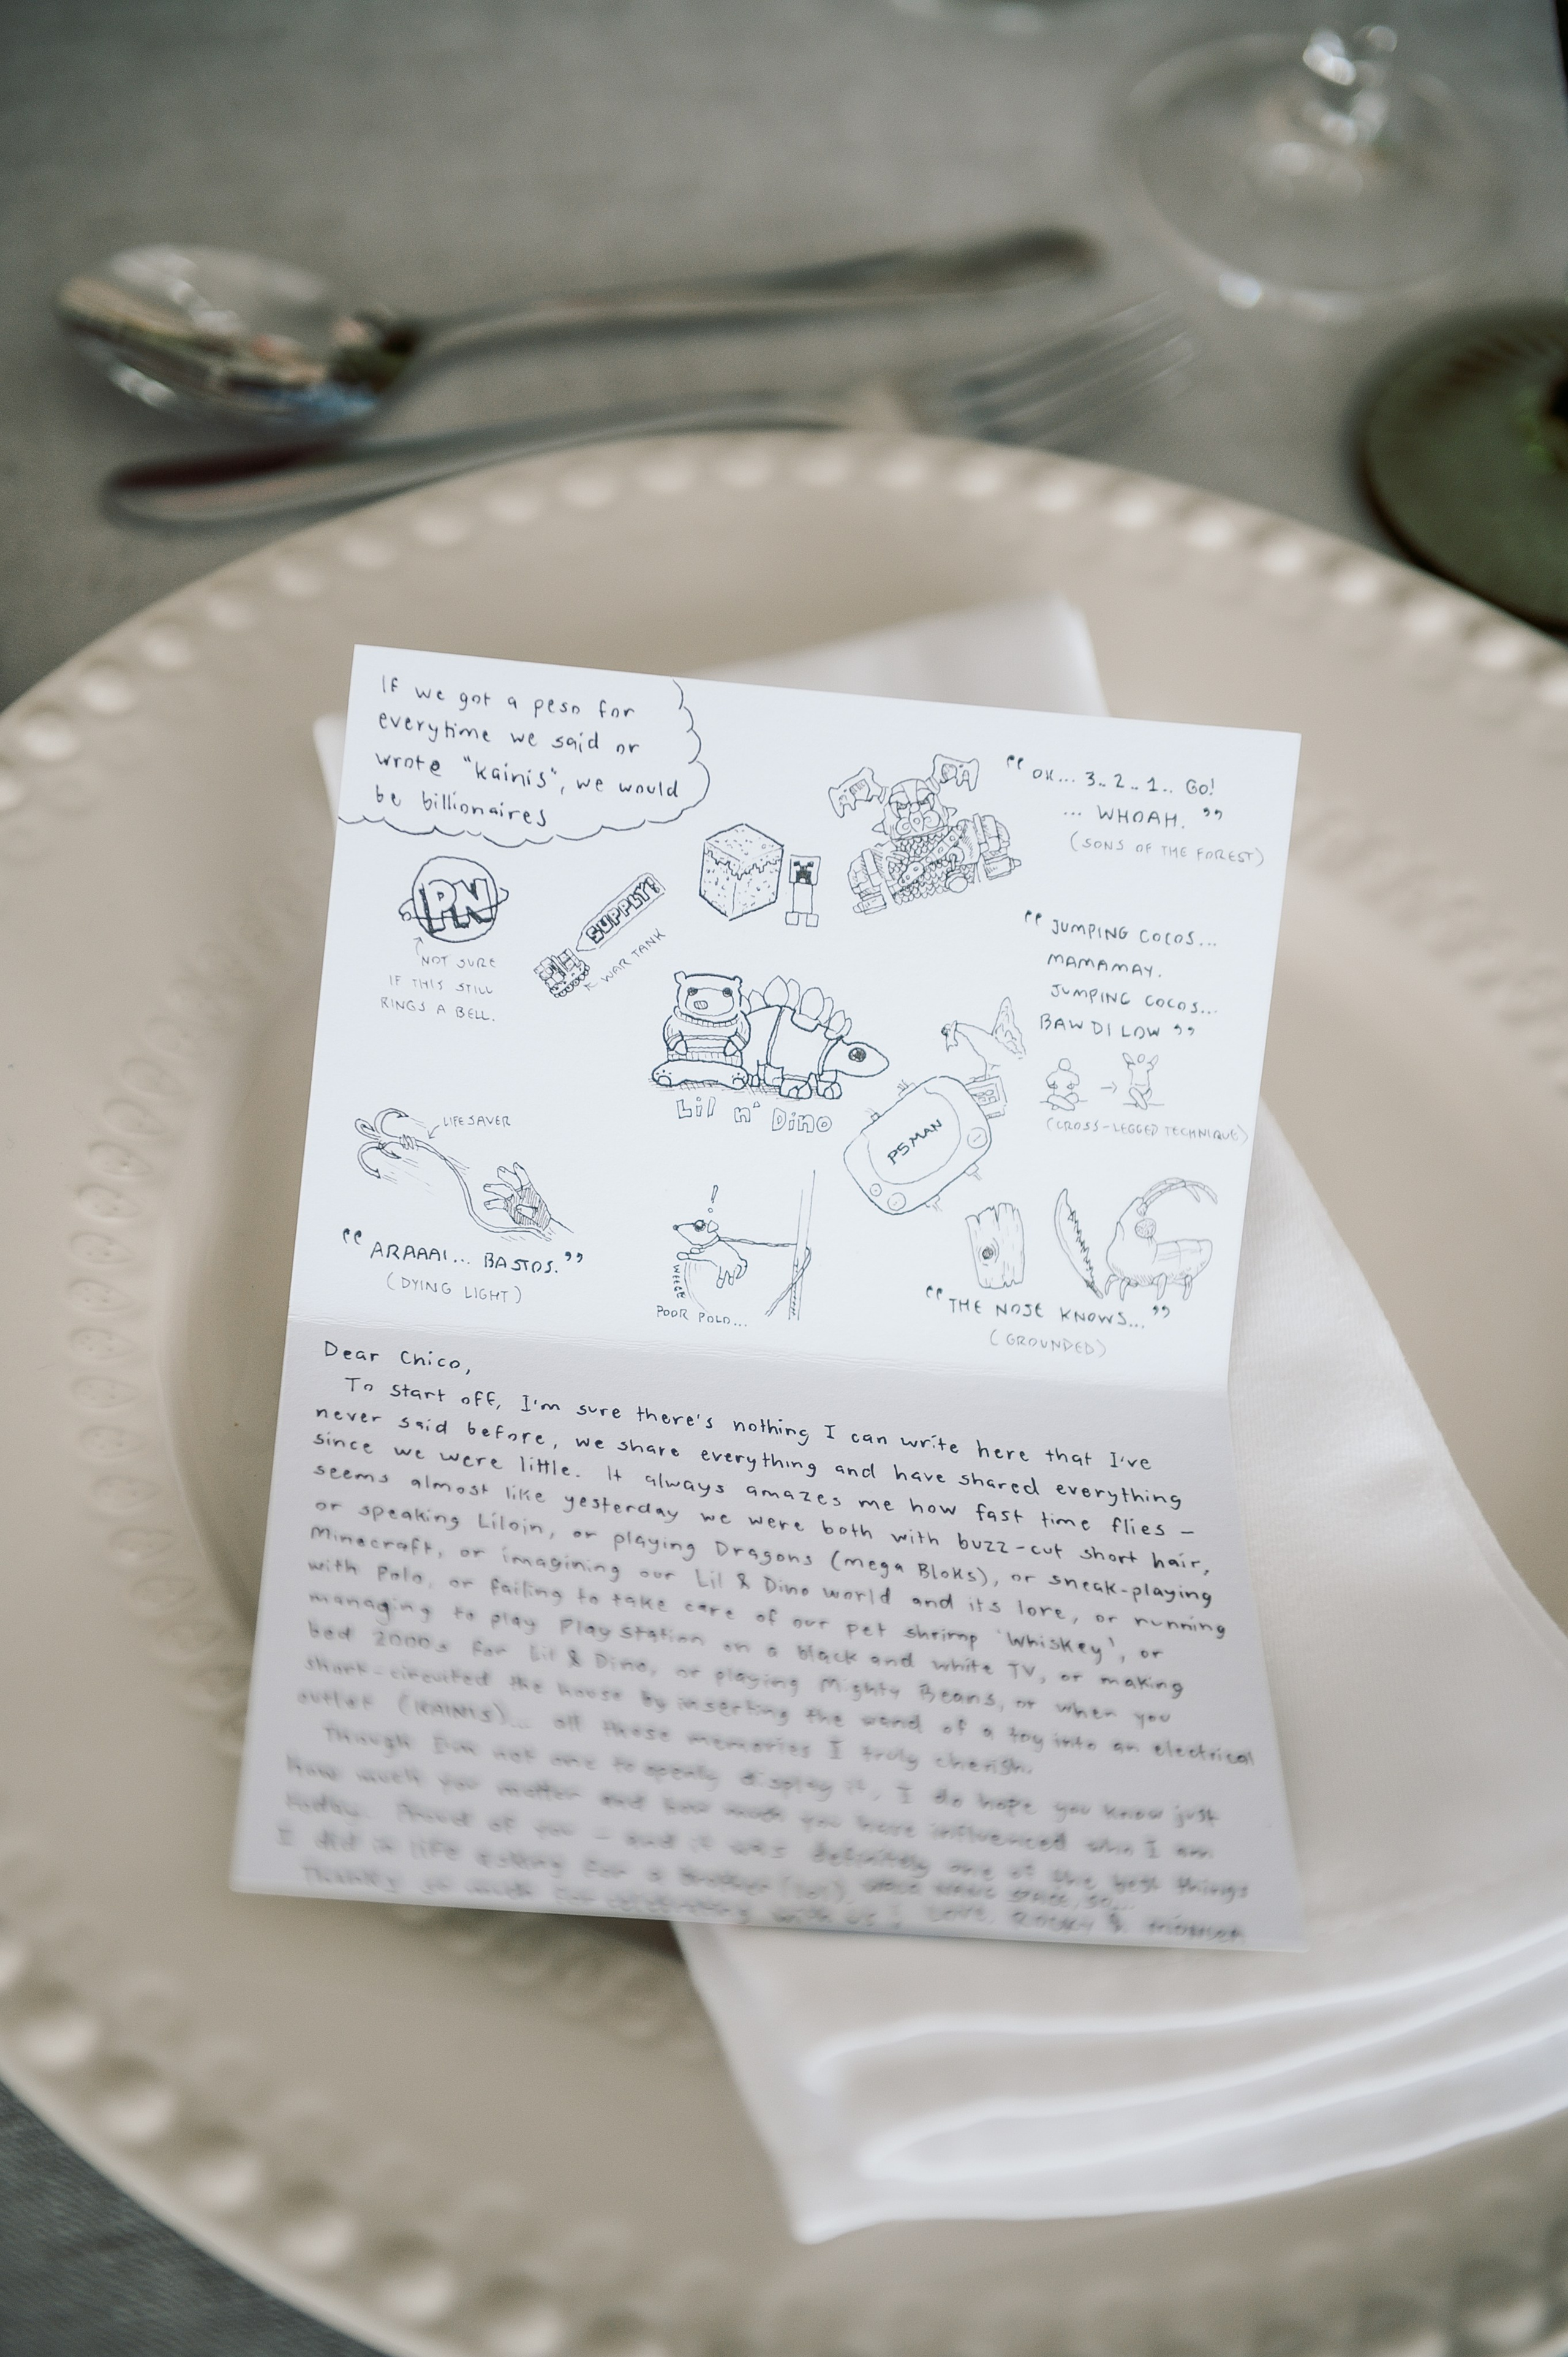 If we got a peso for
everytime we said or
wrote "kainis", we would
be billionaires
"OK... 3.. 2.. 1.. Go!
... WHOAH."
(SONS OF THE FOREST)
PN
NOT SURE
IF THIS STILL
RINGS A BELL.
SUPPLY!
WAR TANK
"JUMPING COCOS...
MAMAMAY.
JUMPING COCOS...
BAWDILOW"
(CROSS-LEGGED TECHNIQUE)
Lil n' Dino
PSMAN
LIFESAVER
"ARAAAI... BASTOS."
(DYING LIGHT)
!
WEEGE
POOR POLO...
"THE NOSE KNOWS..."
(GROUNDED)
Dear Chico,
To start off, I'm sure there's nothing I can write here that I've
never said before, we share everything and have shared everything
since we were little. It always amazes me how fast time flies –
seems almost like yesterday we were both with buzz-cut short hair,
or speaking Liloin, or playing Dragons (Mega Bloks), or sneak-playing
Minecraft, or imagining our Lil & Dino world and its lore, or running
with Polo, or failing to take care of our pet shrimp 'Whiskey', or
managing to play PlayStation on a black and white TV, or making
bed 2000s for Lil & Dino, or playing Mighty Beans, or when you
short-circuited the house by inserting the wand of a toy into an electrical
outlet (KAINIS)... all those memories I truly cherish.
Though I'm not one to openly display it, I do hope you know just
how much you matter and how much you have influenced who I am
today. Proud of you – and it was definitely one of the best things
I did in life asking for a brother (lol),
Thanks so much for celebrating with us! Love, Rocky &